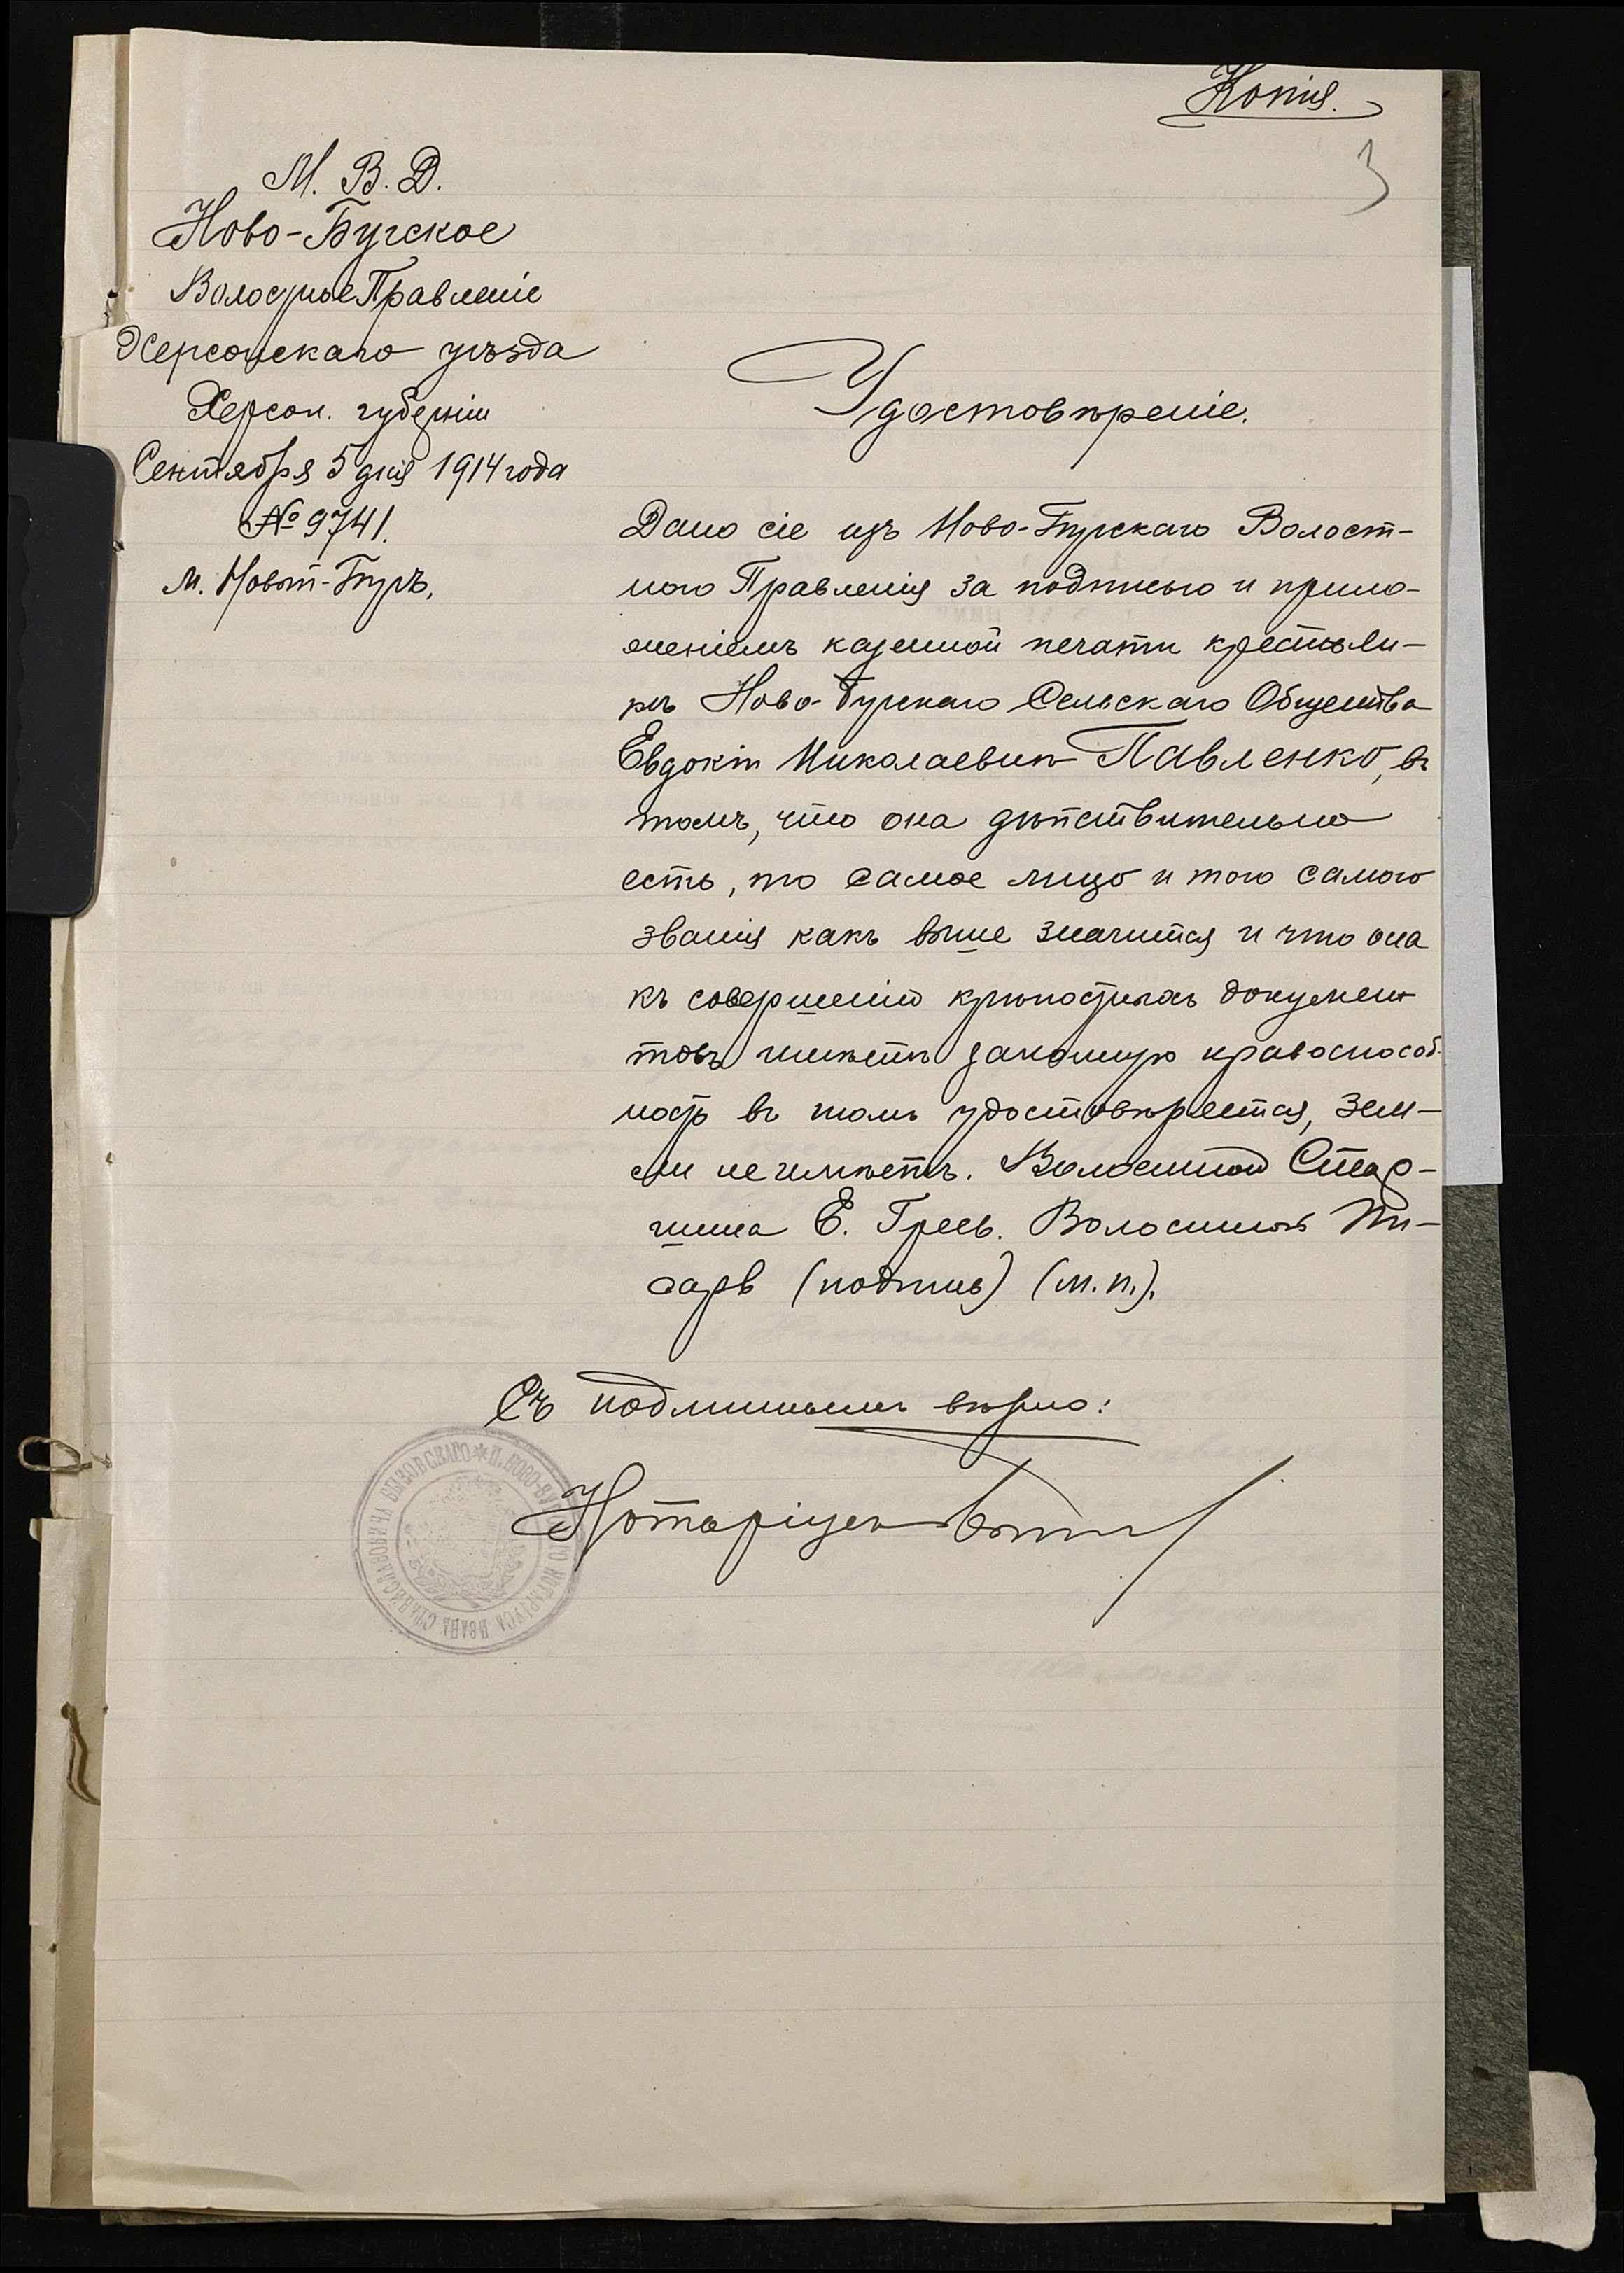 Копія.
3
М. В. Д.
Ново-Бугское
Волостное Правленіе
Херсонскаго уѣзда
Херсон. губерніи
Сентября 5 дня 1914 года
№ 9741.
м. Новый-Бугъ.
Удостовѣреніе.
Дано сіе изъ Ново-Бугскаго Волост-
ного Правленія за подписью и прило-
женіемъ казенной печати крестьян-
кѣ Ново-Бугскаго Сельскаго Общества
Евдокіи Николаевнѣ Павленко, въ
томъ, что она дѣйствительно
есть, то самое лицо и того самого
званія какъ выше значится и что она
къ совершенію крѣпостныхъ докумен-
товъ имѣетъ законную правоспособ-
ность въ томъ удостовѣряется, Зем-
ли не имѣетъ. Волостной Стар-
шина Е. Греевъ. Волостной Пи-
сарь (подпись) (м. п.).
Съ подлиннымъ вѣрно:
Нотаріусъ
* Н. НОВО-БУГСКАГО НОТАРІУСА ИВАНА СТАНИСЛАВОВИЧА БЫКОВСКАГО